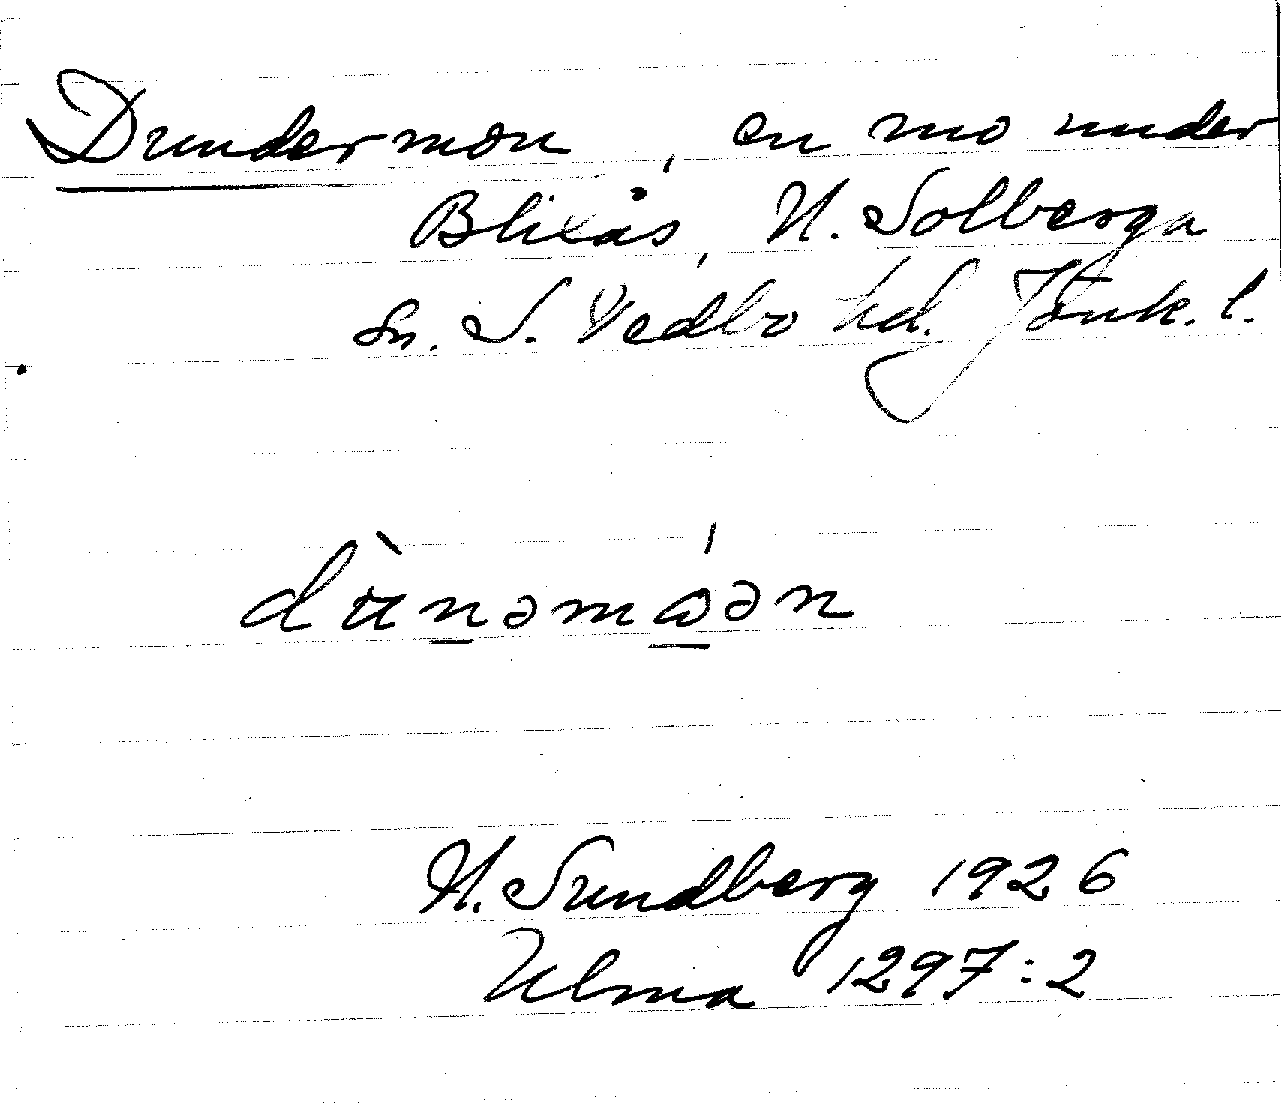 Dundermon, en mo under
Blixås, N. Solberga
sn. S. Vedbo hd. Jönk. l.
N. Sundberg 1926
Ulma 1297:2